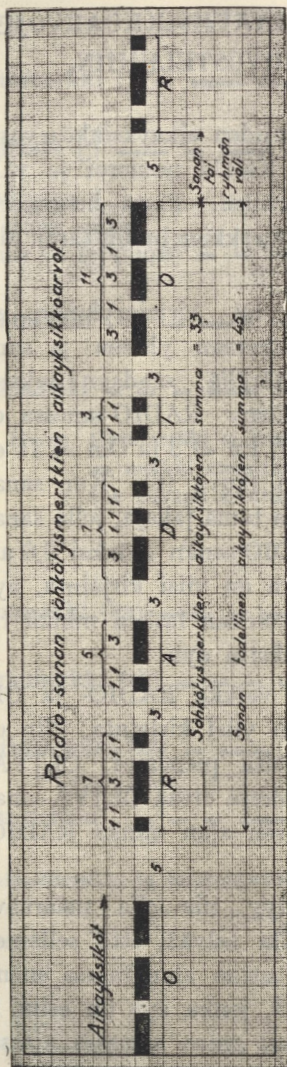 Radio-sanan sähkötysmerkkien aikayksikköarvot.
Aikayksiköt
7 5 7 3 11
1 1 3 1 1 1 1 3 3 1 1 1 1 1 1 1 3 1 3 1 3
5 3 3 3 3 5
O R A D I O R
Sähkötysmerkkien aikayksikköjen summa = 33
Sanan todellinen aikayksikköjen summa = 45
Sanan
tai
ryhmän
väli